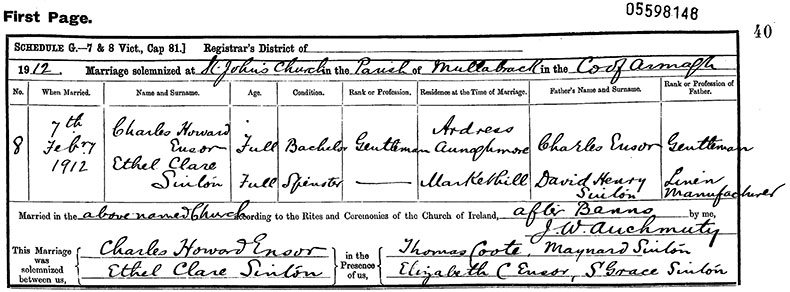 05598148
First Page.
40
SCHEDULE G.—7 & 8 Vict., Cap 81.] Registrar's District of
1912. Marriage solemnized at St. John's Church in the Parish of Mullabrack in the Co of Armagh
No. When Married. Name and Surname. Age. Condition. Rank or Profession. Residence at the Time of Marriage. Father's Name and Surname. Rank or Profession of Father.
8 7th Febry 1912 Charles Howard Ensor Full Bachelor Gentleman Ardress Aunaghmore Charles Ensor Gentleman
Ethel Clare Sinton Full Spinster — Markethill David Henry Sinton Linen Manufacturer
Married in the above named Church according to the Rites and Ceremonies of the Church of Ireland, after Banns by me,
J. W. Auchmuty
This Marriage was solemnized between us, Charles Howard Ensor Ethel Clare Sinton in the Presence of us, Thomas Coote, Maynard Sinton Elizabeth C Ensor, S Grace Sinton